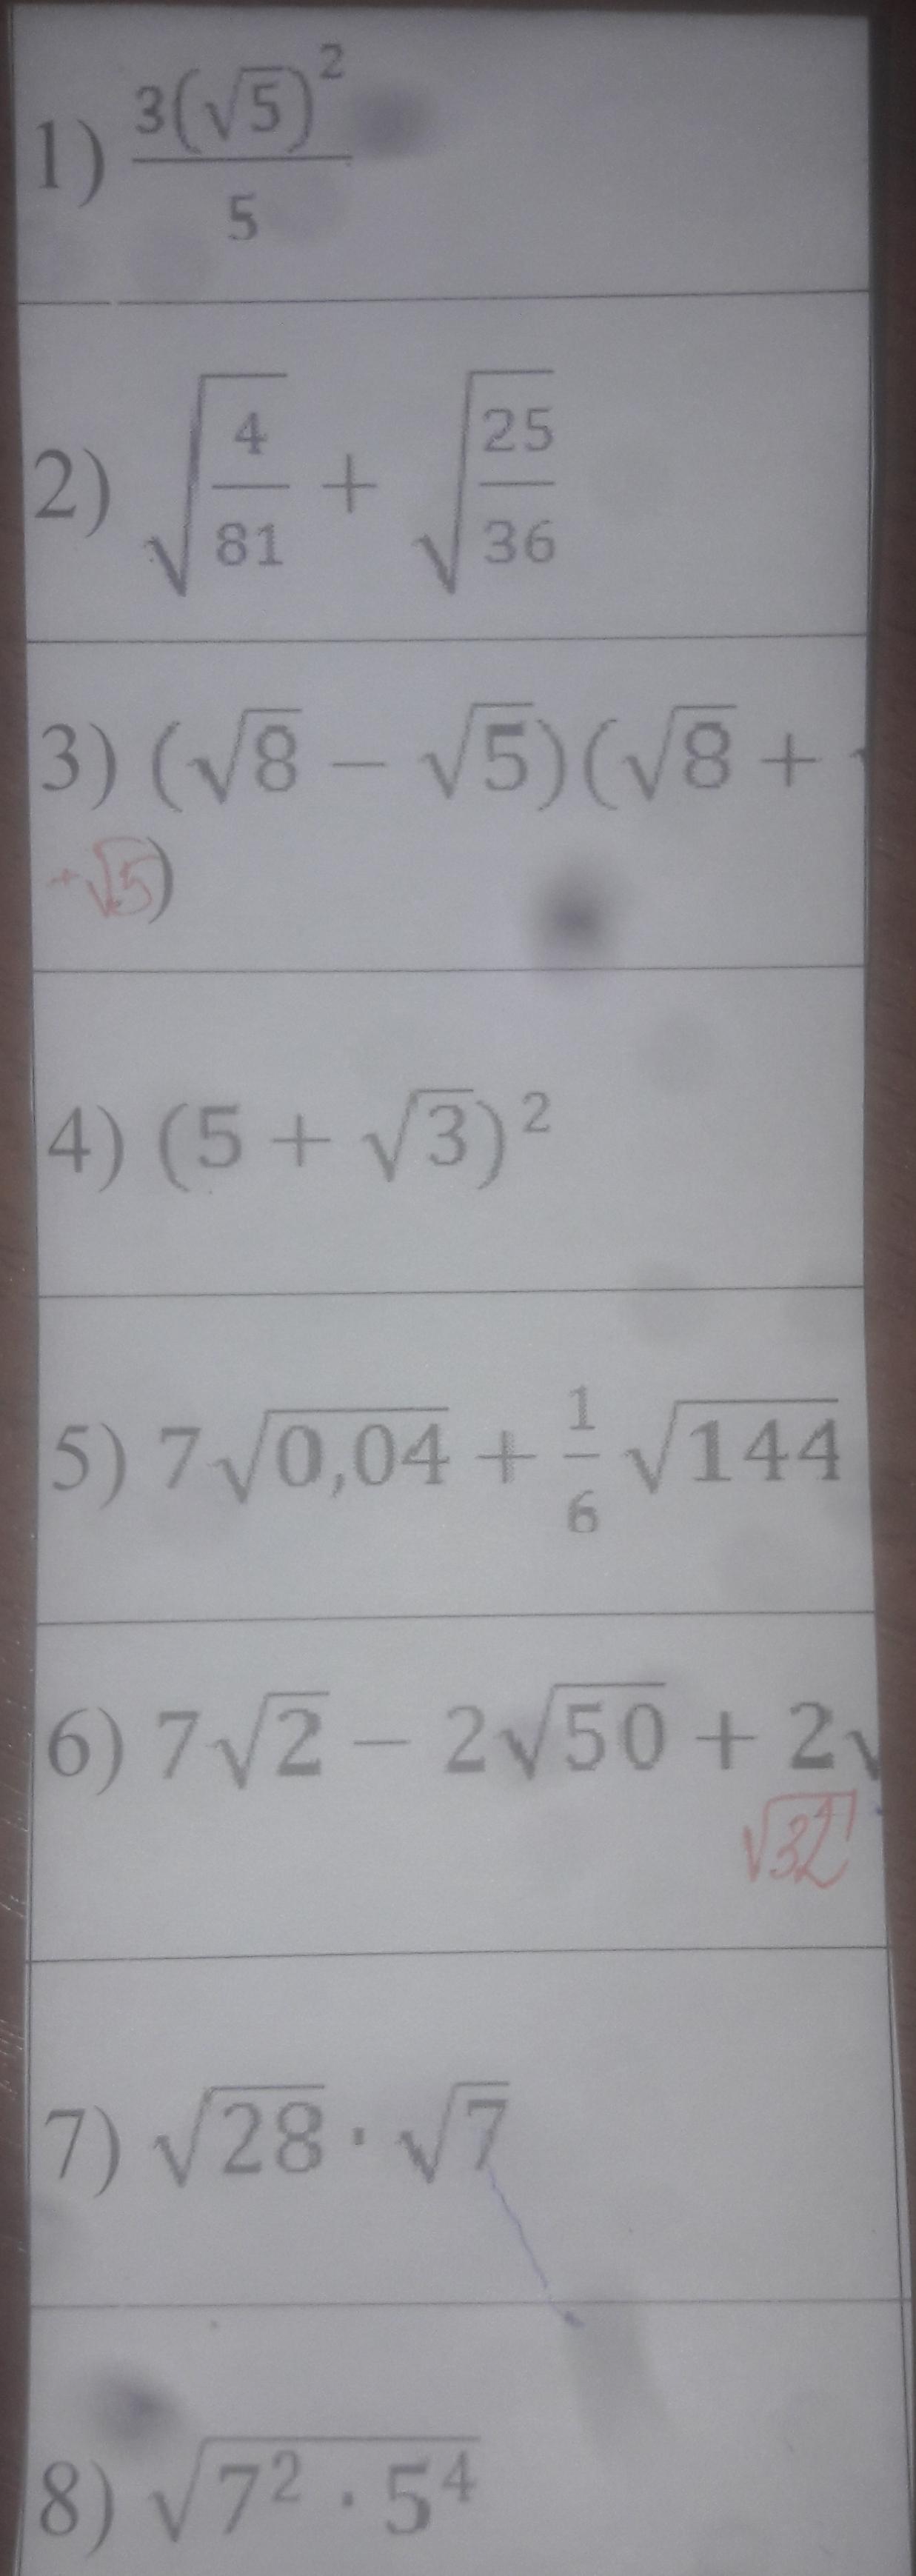 1) 3(√5)² / 5
2) √(4/81) + √(25/36)
3) (√8 − √5)(√8 +
+√5)
4) (5 + √3)²
5) 7√0,04 + 1/6 √144
6) 7√2 − 2√50 + 2√
√32
7) √28 · √7
8) √(7² · 5⁴)